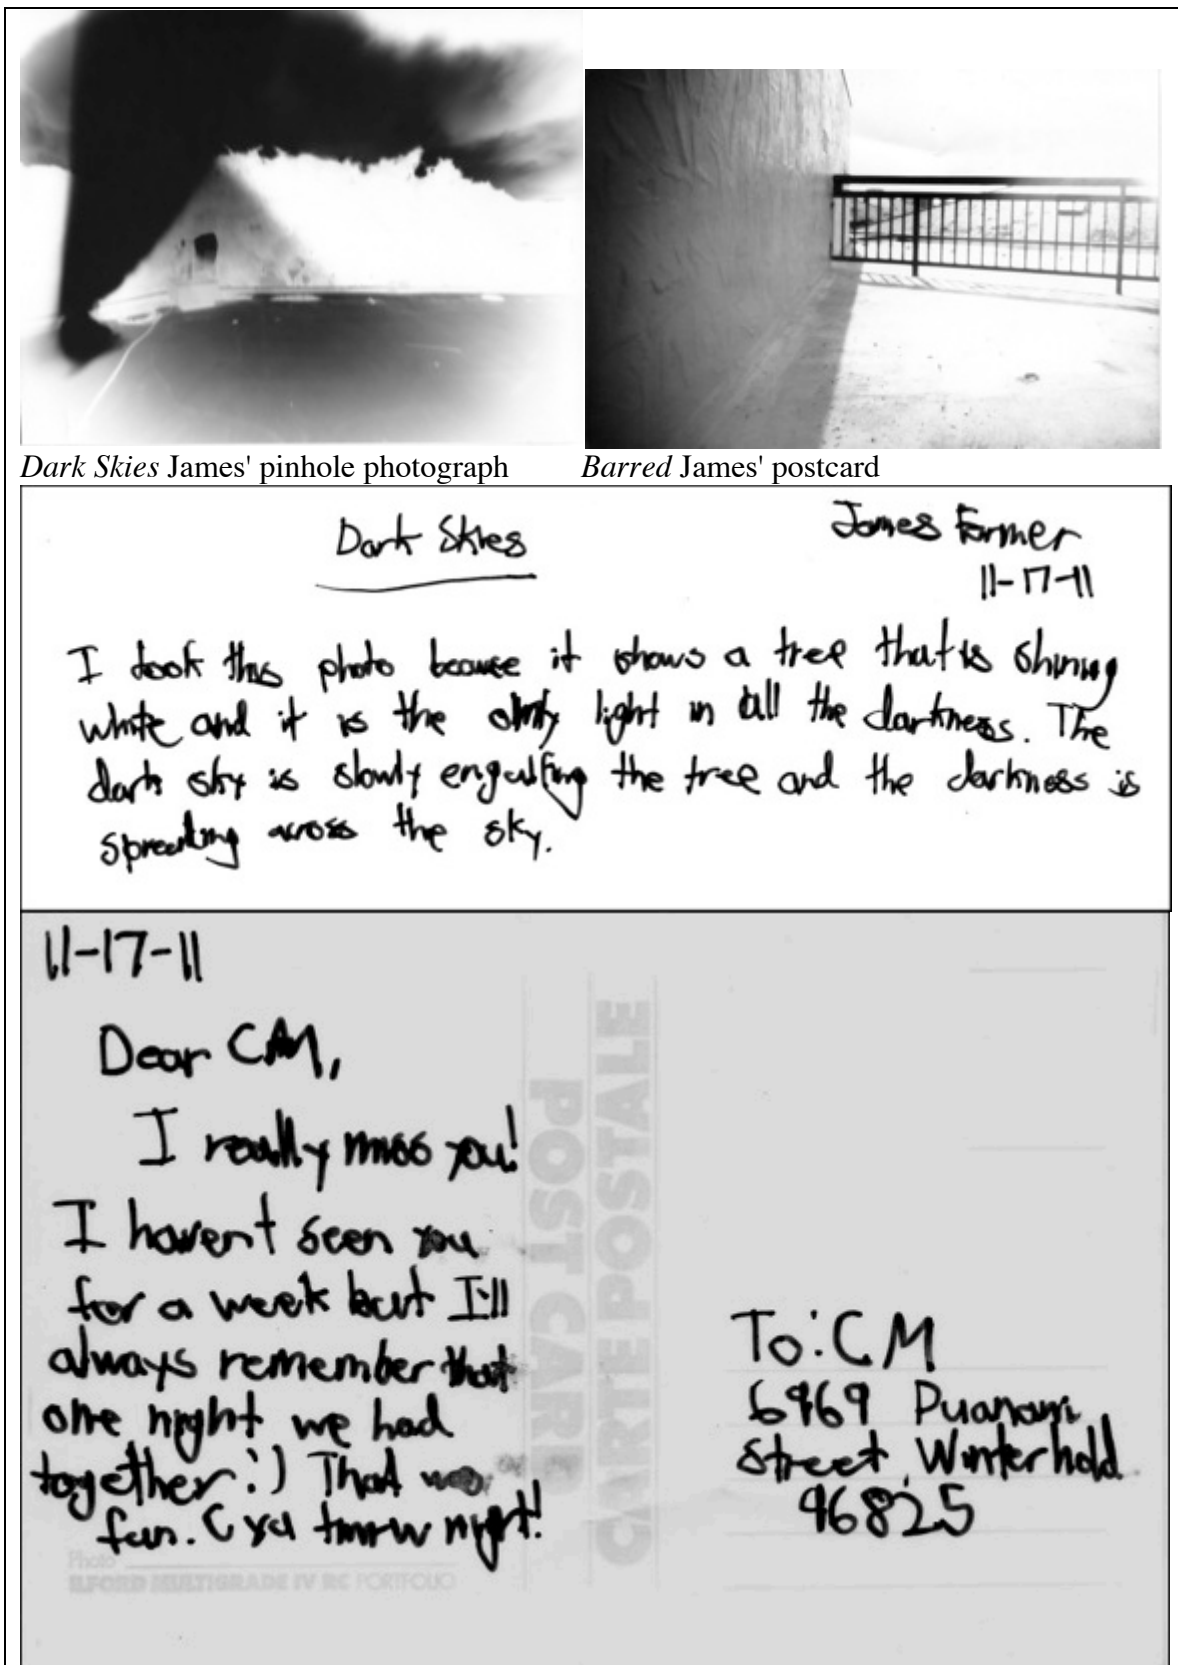 Dark Skies James' pinhole photograph
Barred James' postcard
Dark Skies
James Farmer
11-17-11
I took this photo because it shows a tree that is shining
white and it is the only light in all the darkness. The
dark sky is slowly engulfing the tree and the darkness is
spreading across the sky.
11-17-11
Dear CM,
I really miss you!
I haven't seen you
for a week but I'll
always remember that
one night we had
together :) That was
fun. C ya tmrw night!
POST CARD
CARTE POSTALE
To: CM
6969 Puanani
Street, Winterhold
96825
Photo
ILFORD MULTIGRADE IV RC PORTFOLIO